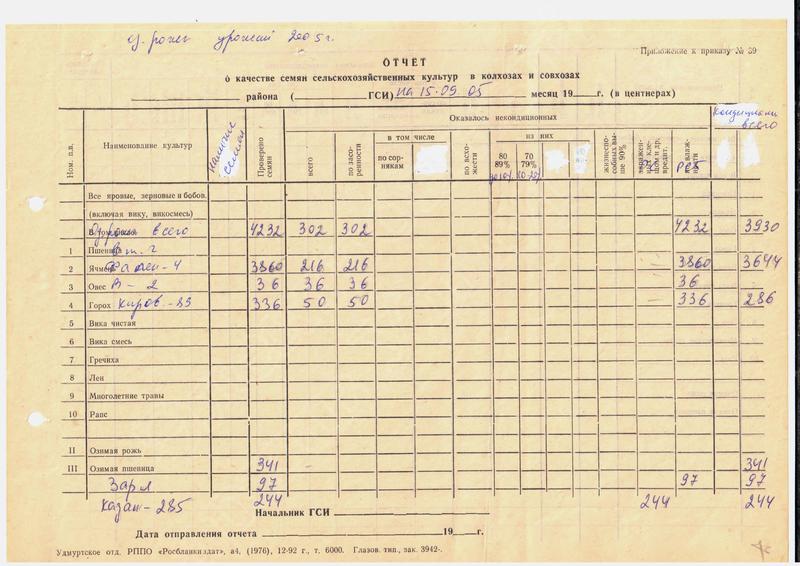 оз. рожь урожай 2005 г.
Приложение к приказу № 39
ОТЧЕТ
о качестве семян сельскохозяйственных культур в колхозах и совхозах
района ( ГСИ) на 15.09 05 месяц 19 г. (в центнерах)
Ном. п.п.
Наименование культур
Наличие семян
Проверено семян
Оказалось некондиционных
всего
по засоренности
в том числе
по сорнякам
по всхожести
из них
80 89%
70 79%
жизнеспособных выше 90%
Кондиционн всего
Все яровые, зерновые и бобов.
(включая вику, викосмесь)
Оз. рожь всего 4232 302 302 4232 3930
1 Пшеница в т. ч
2 Ячмень Фален-4 3860 216 216 3860 3644
3 Овес В-2 36 36 36 36
4 Горох Киров-89 336 50 50 336 286
5 Вика чистая
6 Вика смесь
7 Гречиха
8 Лен
9 Многолетние травы
10 Рапс
II Озимая рожь
III Озимая пшеница 341 - 341
Заря 97 97 97
Казан-285 244 244 244
Начальник ГСИ
Дата отправления отчета 19 г.
Удмуртское отд. РППО «Росбланкиздат», а4, (1976), 12-92 г., т. 6000. Глазов. тип., зак. 3942-.